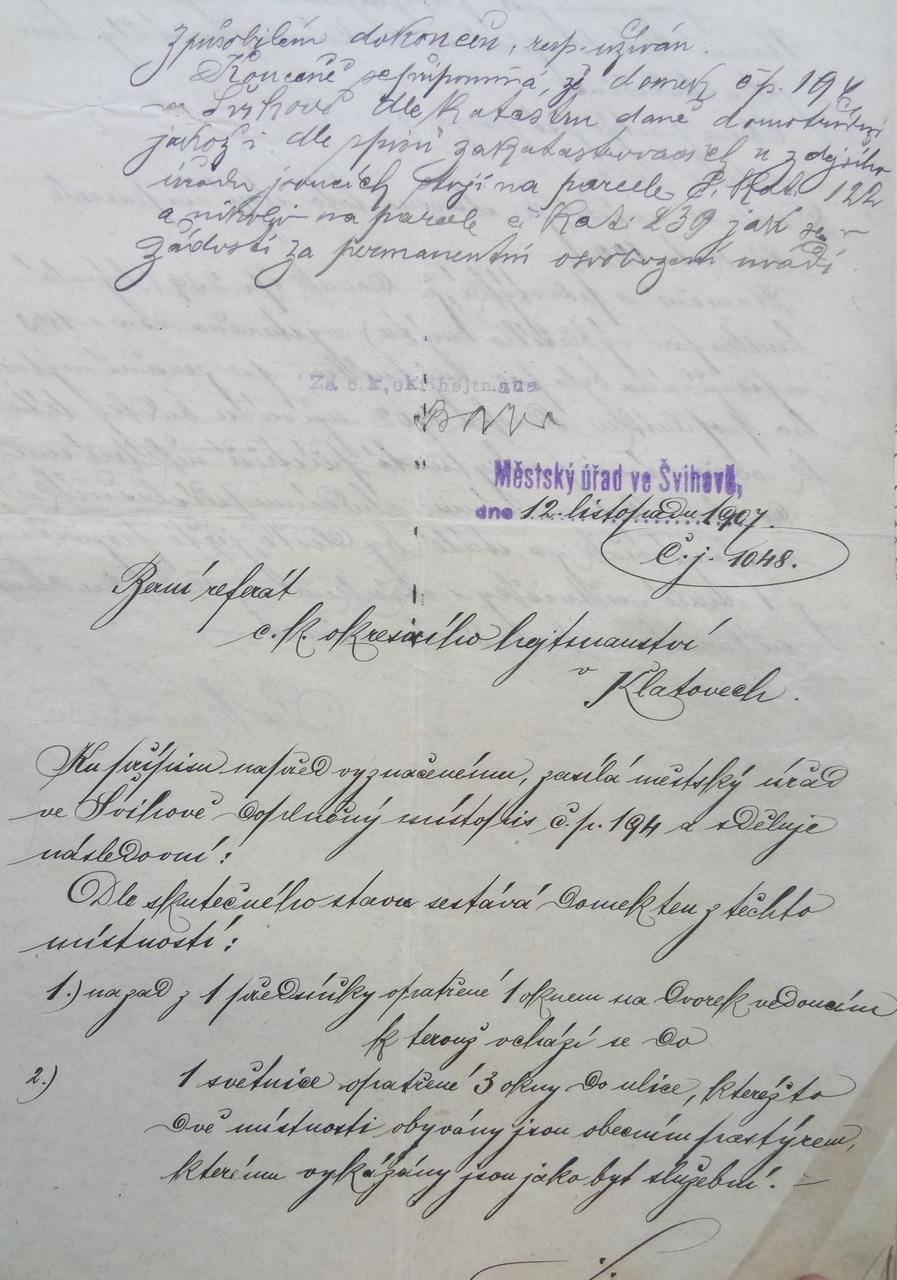 způsobilém dokončen, resp. užíván.
Konečně se připomíná, že domek čp. 194
ve Švihově dle katastru daně domovní třídní
jakož i dle spisů zakatastrovacích u zdejšího
úřadu jsoucích stojí na parcele č. kat. 122
a nikoliv na parcele č. kat. 239 jak se v
žádosti za permanentní osvobození uvádí.
Za c.k. okr. hejtmana
Městský úřad ve Švihově,
dne 12. listopadu 1907.
Č. j. 1048.
Berní referát
c. k. okresního hejtmanství
v
Klatovech.
Ku přípisu napřed vyznačenému, zasílá městský úřad
ve Švihově doplněný místopis č. p. 194 a sděluje
následovní:
Dle skutečného stavu sestává domek ten z těchto
místností:
1.) nazad z 1 předsíňky opatřené 1 oknem na dvorek vedoucím
kterouž vchází se do
2.) 1 světnice opatřené 3 okny do ulice, kteréžto
dvě místnosti obývány jsou obecním pastýřem,
kterému vykázány jsou jako byt služební. —